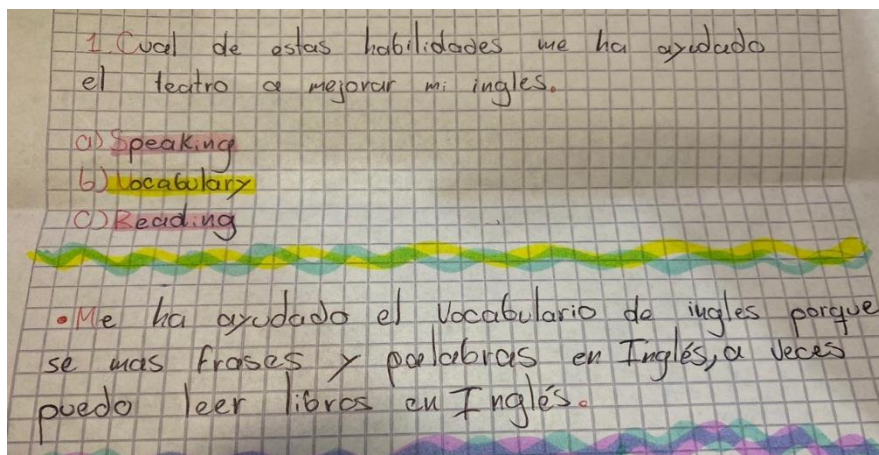 1. Cual de estas habilidades me ha ayudado
el teatro a mejorar mi ingles.
a) Speaking
b) Vocabulary
c) Reading
• Me ha ayudado el Vocabulario de ingles porque
se mas frases y palabras en Inglés, a veces
puedo leer libros en Inglés.